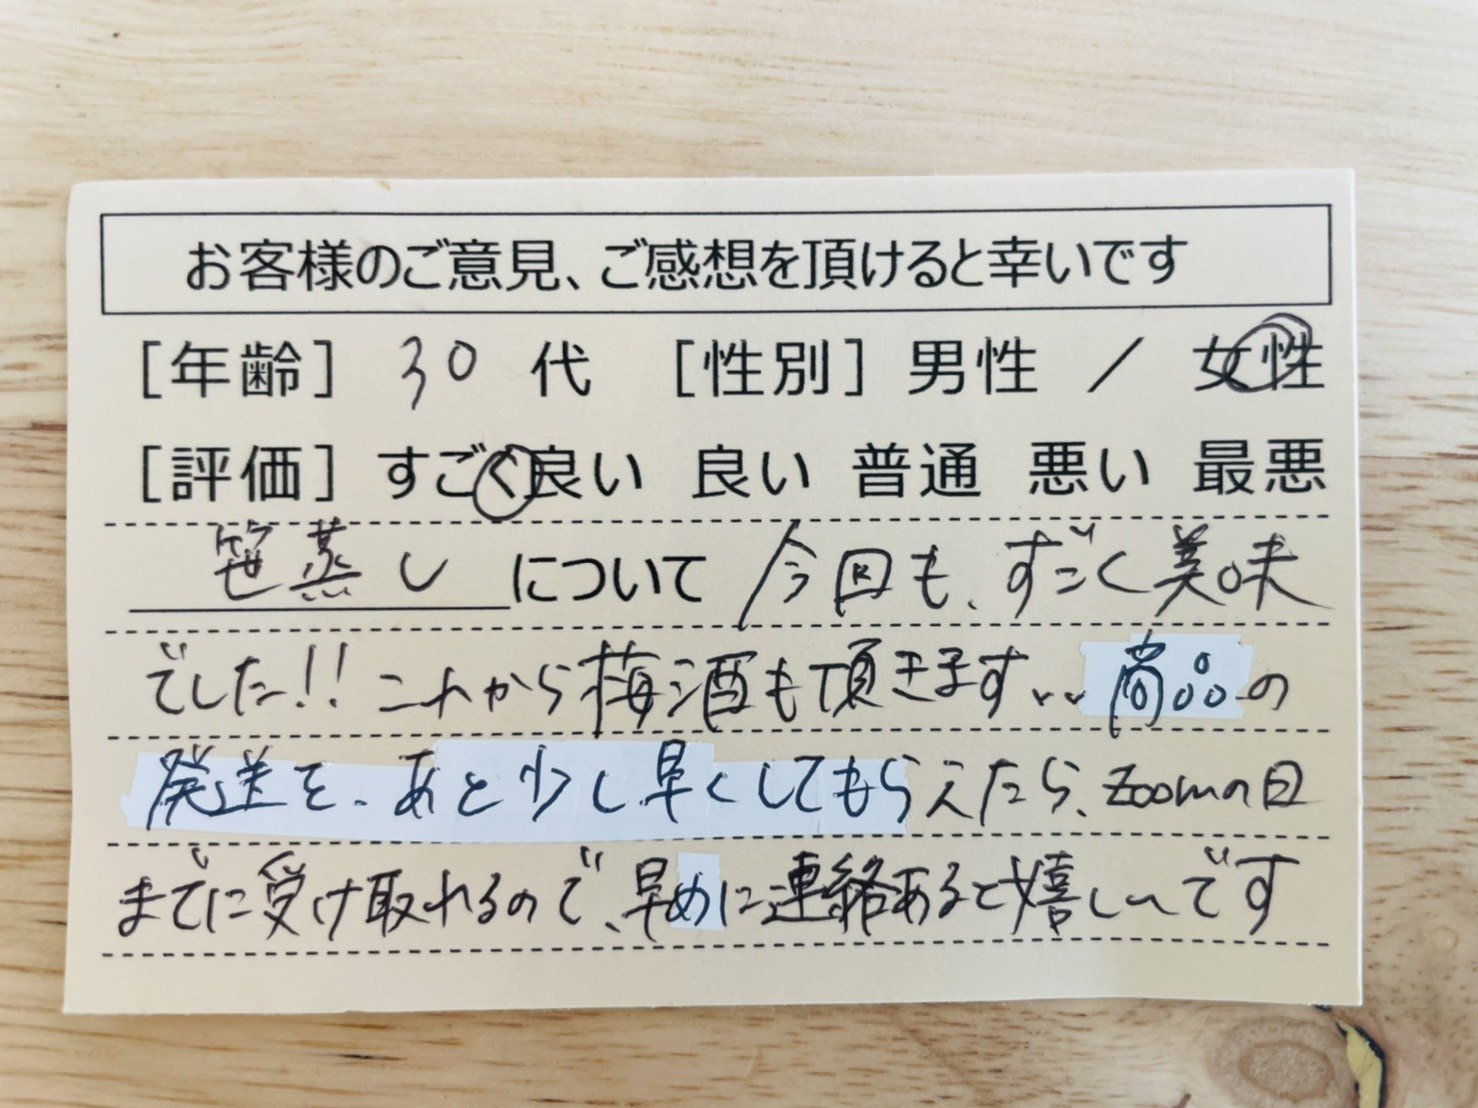 お客様のご意見、ご感想を頂けると幸いです
[年齢] 30 代 [性別] 男性 / 女性
[評価] すごく良い 良い 普通 悪い 最悪
笹蒸し について 今回も、すごく美味
でした!! これから梅酒も頂きます、、 商品の
発送を、あと少し早くしてもらえたら、zoomの日
までに受け取れるので、早めに連絡あると嬉しいです